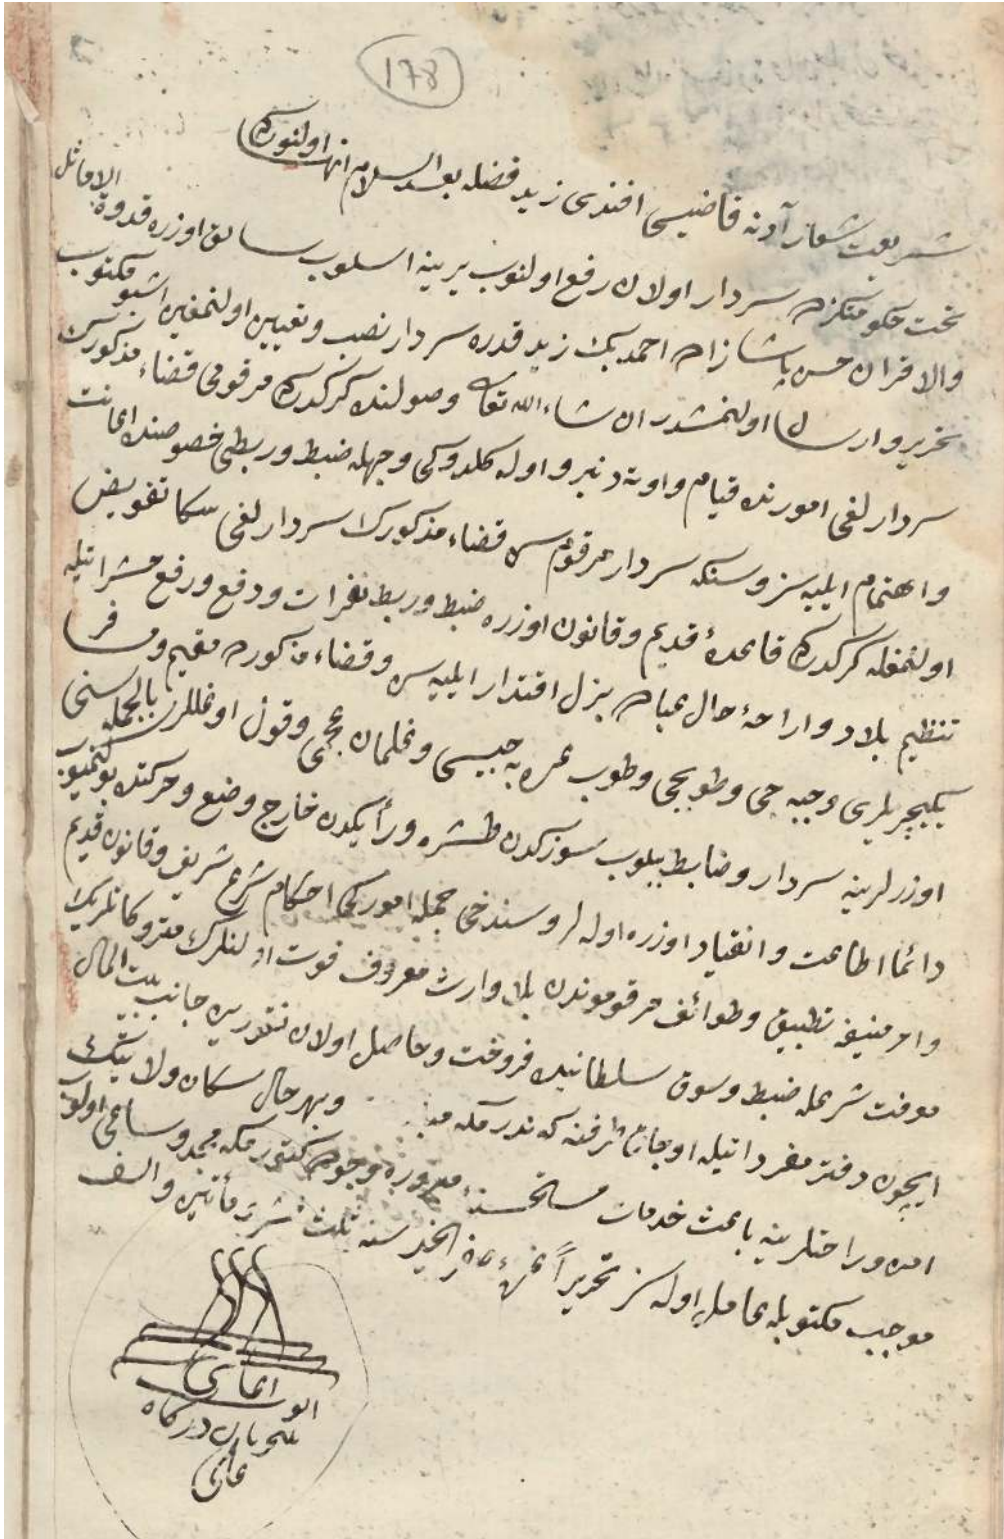 ١٧٨
شريعت شعار آدنه قاضيسى افندى زيد فضله بعد السلام انها اولنوركه
تحت حكومتكزده سردار اولان رفع اولنوب يرينه اسلوب سابق اوزره قدوة الاماثل
والاقران حسن پاشا زاده احمد بك زيد قدره سردار نصب وتعيين اولنمغين اشبو مكتوب
تحرير وارسال اولنمشدر ان شاء الله تعالى وصولنده كركدركه مرقومى قضاء مذكورك
سردارلغى امورنده قيام واوته دنبرو اوله كلدوكى وجهله ضبط وربطى خصوصنده اعانت
واهتمام ايليه سز وسنكه سردار مرقوم سن قضاء مذكورك سردارلغى سكا تفويض
اولنمغله كركدركه قاعدۀ قديم وقانون اوزره ضبط وربط نفرات ودفع ورفع حشراتيله
تنظيم بلاد واراحۀ حال عباده بذل اقتدار ايليه سن وقضاء مذكورده مقيم ومسافر
يكيچريلرى وجبه جى وطوپجى وطوب عربه جيسى وغلمان عجمى وقول اوغللرى بالجمله سنى
اوزرلرينه سردار وضابط بيلوب سوزكدن طشره ورأيكدن خارج وضع وحركتده بولنميوب
دائما اطاعت وانقياد اوزره اوله لر وسندخى جمله اموركى احكام شرع شريف وقانون قديم
وامر منيفه تطبيق وطوائف مرقوموندن بلا وارث معروف فوت اولنلرك متروكاتلرينك
معرفت شرعله ضبط وسوق سلطانيده فروخت وحاصل اولان نقودين جانب بيت المال
ايچون دفتر مفرداتيله اوجاق طرفنه كوندرمكه وبهر حال سكان ولايتك
امن وراحتلرينه باعث خدمات مستحسنه وجوده كتورمكه مجد وساعى اولوب
موجب مكتوبله عامل اوله سز تحريراً فى غرۀ صفر الخير سنه ثلث عشر مأتين والف
درگاه
عالى